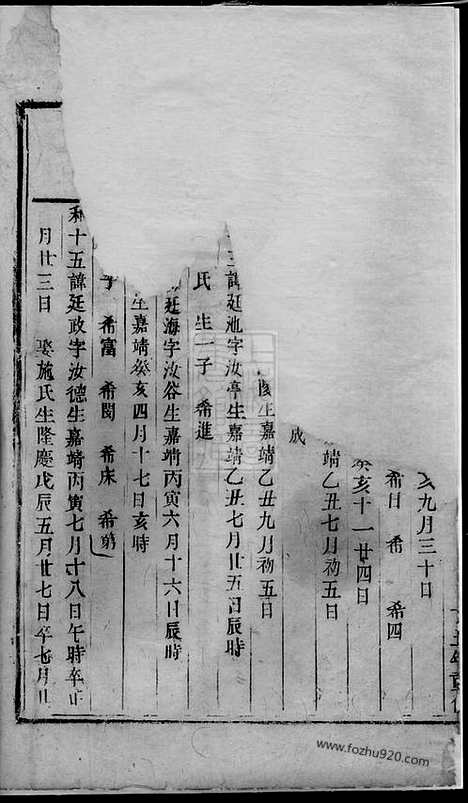 九月三十日
希日 希 希四
癸亥十一廿四日
靖乙丑七月初五日
成
生嘉靖乙丑九月初五日
三諱廷池字汝亭生嘉靖乙丑七月廿五日辰時
氏 生一子 希進
廷海字汝谷生嘉靖丙寅六月十六日辰時
生嘉靖癸亥四月十七日亥時
子 希富 希閔 希床 希第
利十五諱廷政字汝德生嘉靖丙寅七月十八日午時卒正
月廿三日 娶施氏生隆慶戊辰五月廿七日卒七月廿
www.fozhu920.com